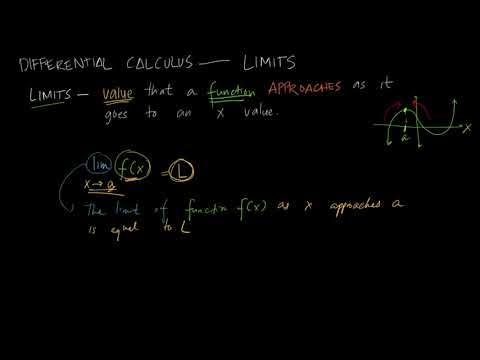 DIFFERENTIAL CALCULUS — LIMITS
LIMITS — value that a function APPROACHES as it
goes to an x value.
x
a
lim f(x) = L
x → a
The limit of function f(x) as x approaches a
is equal to L